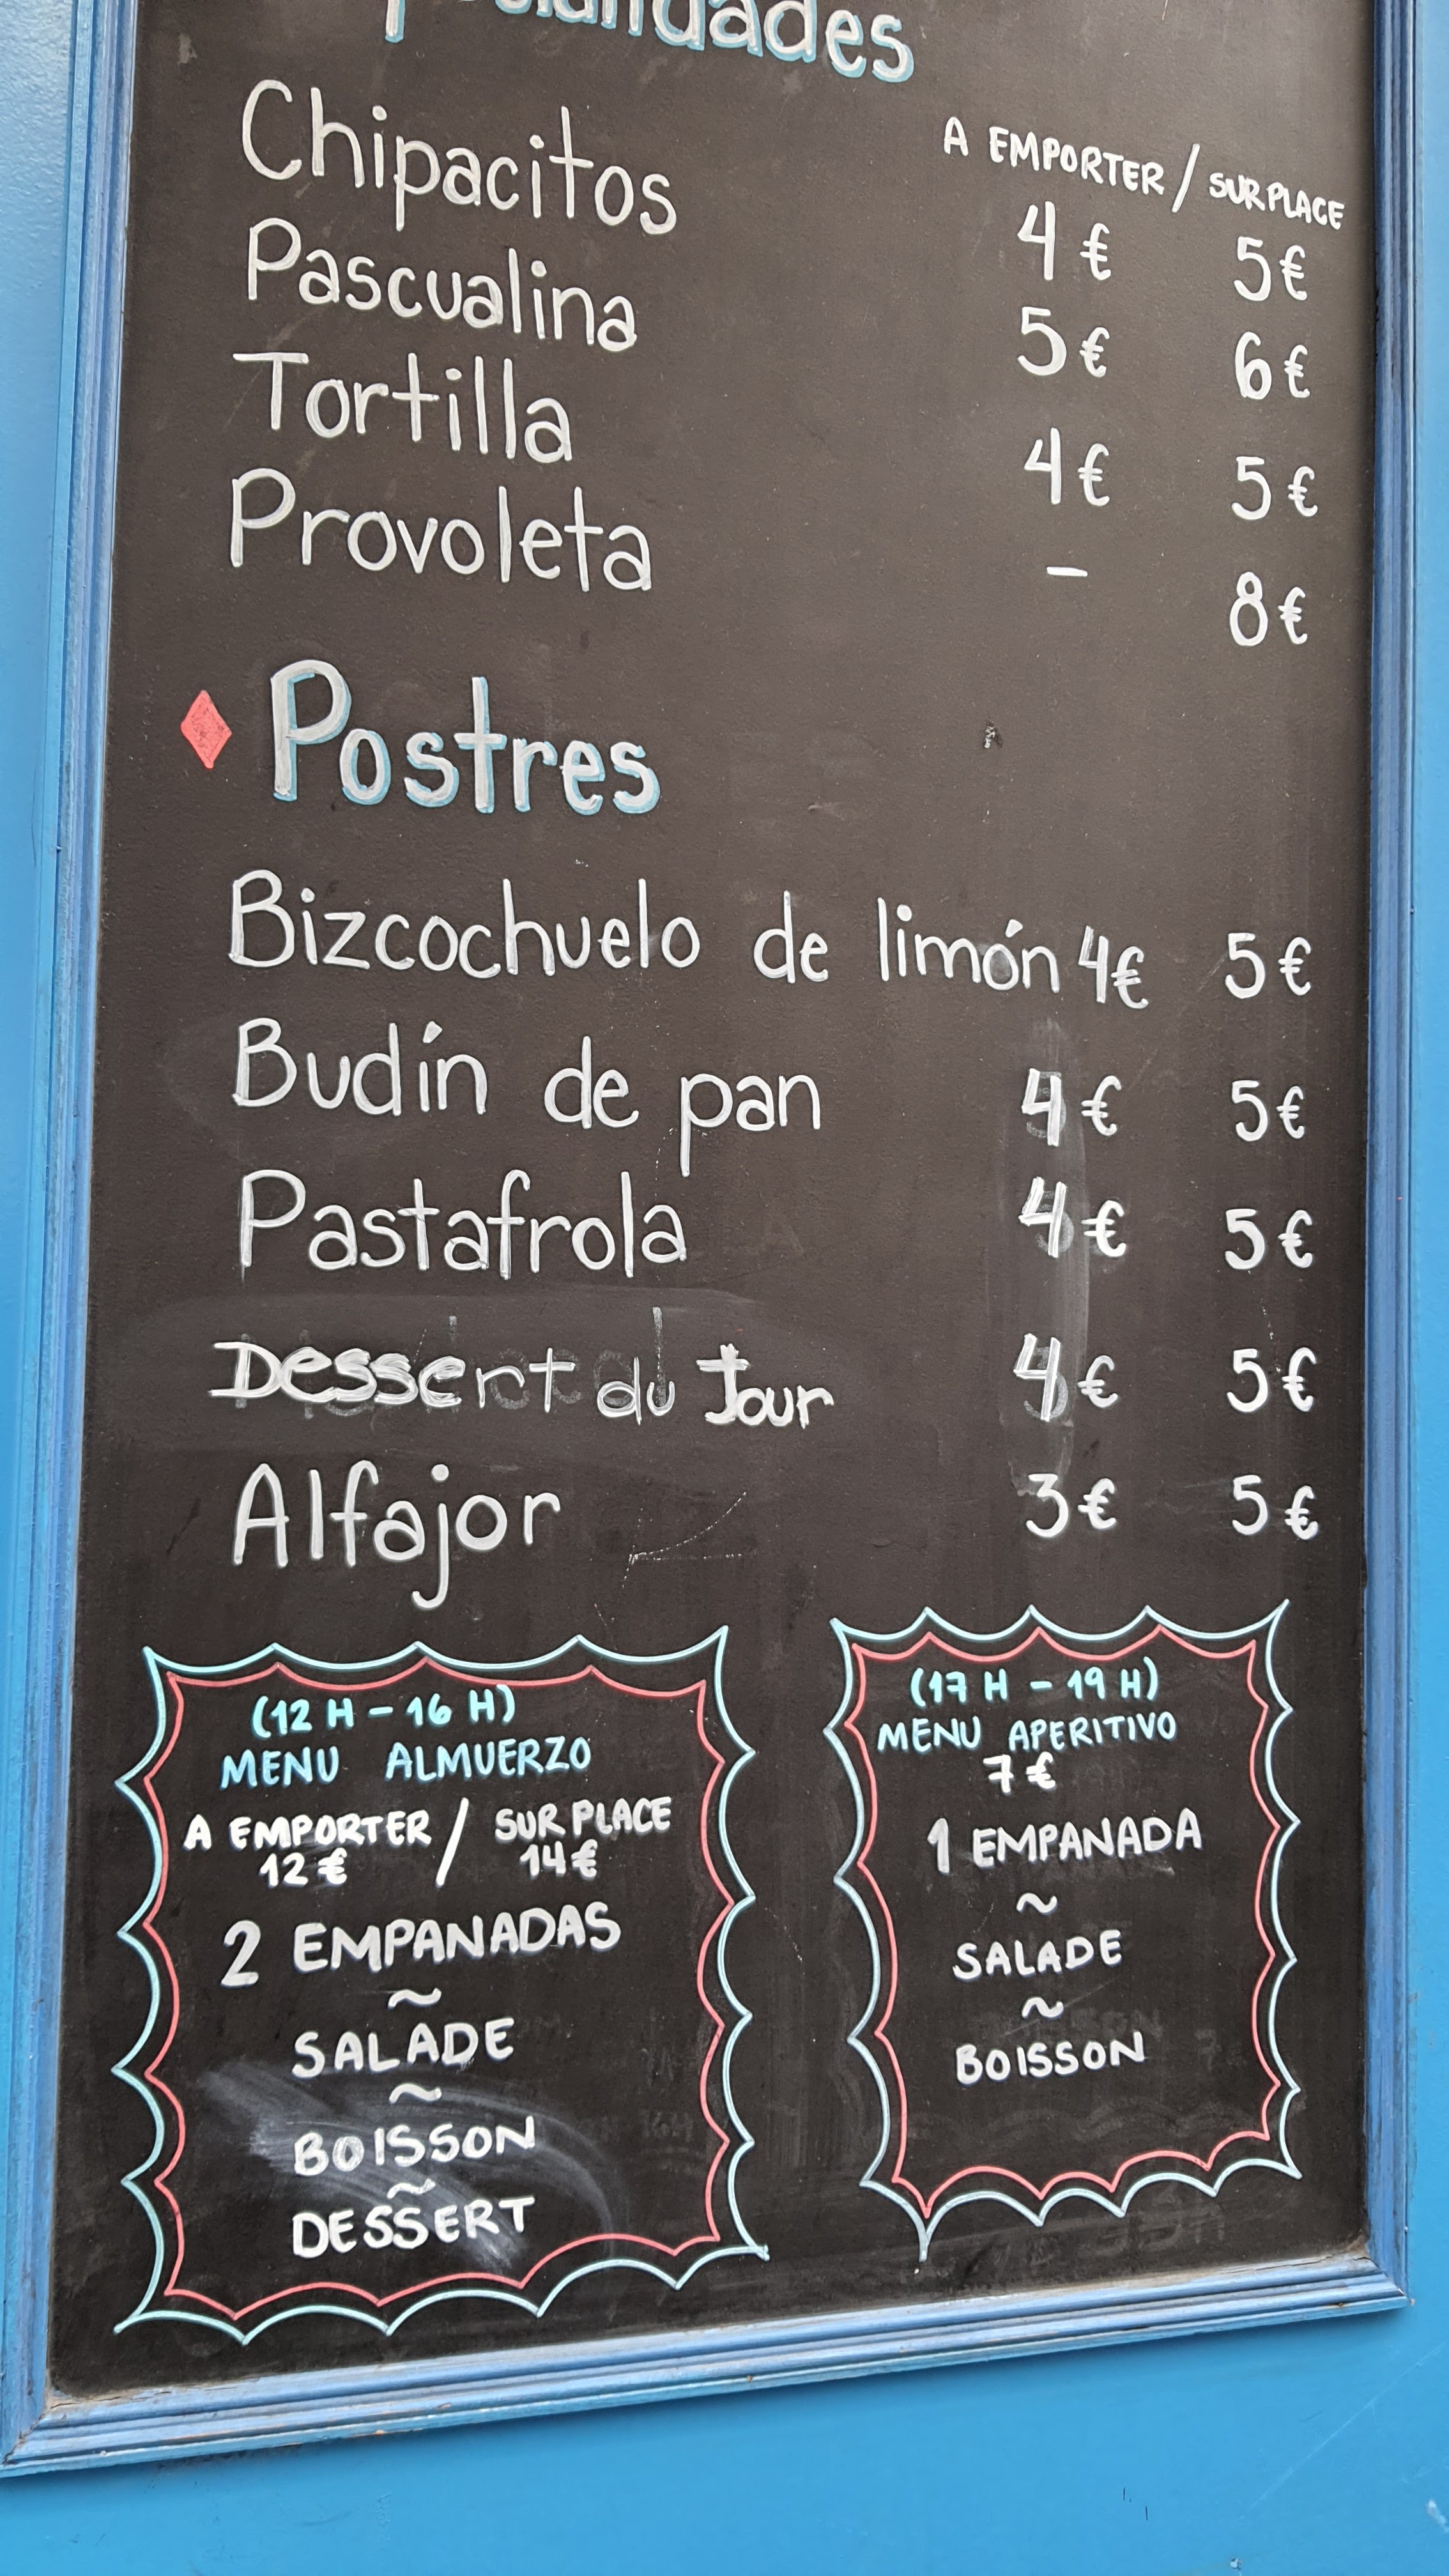 Chipacitos
A EMPORTER / SUR PLACE
4€ 5€
Pascualina 5€ 6€
Tortilla 4€ 5€
Provoleta - 8€
Postres
Bizcochuelo de limón 4€ 5€
Budín de pan 4€ 5€
Pastafrola 4€ 5€
Dessert du Jour 4€ 5€
Alfajor 3€ 5€
(12 H - 16 H)
MENU ALMUERZO
A EMPORTER / SUR PLACE
12€ 14€
2 EMPANADAS
~
SALADE
~
BOISSON
~
DESSERT
(17 H - 19 H)
MENU APERITIVO
7€
1 EMPANADA
~
SALADE
~
BOISSON